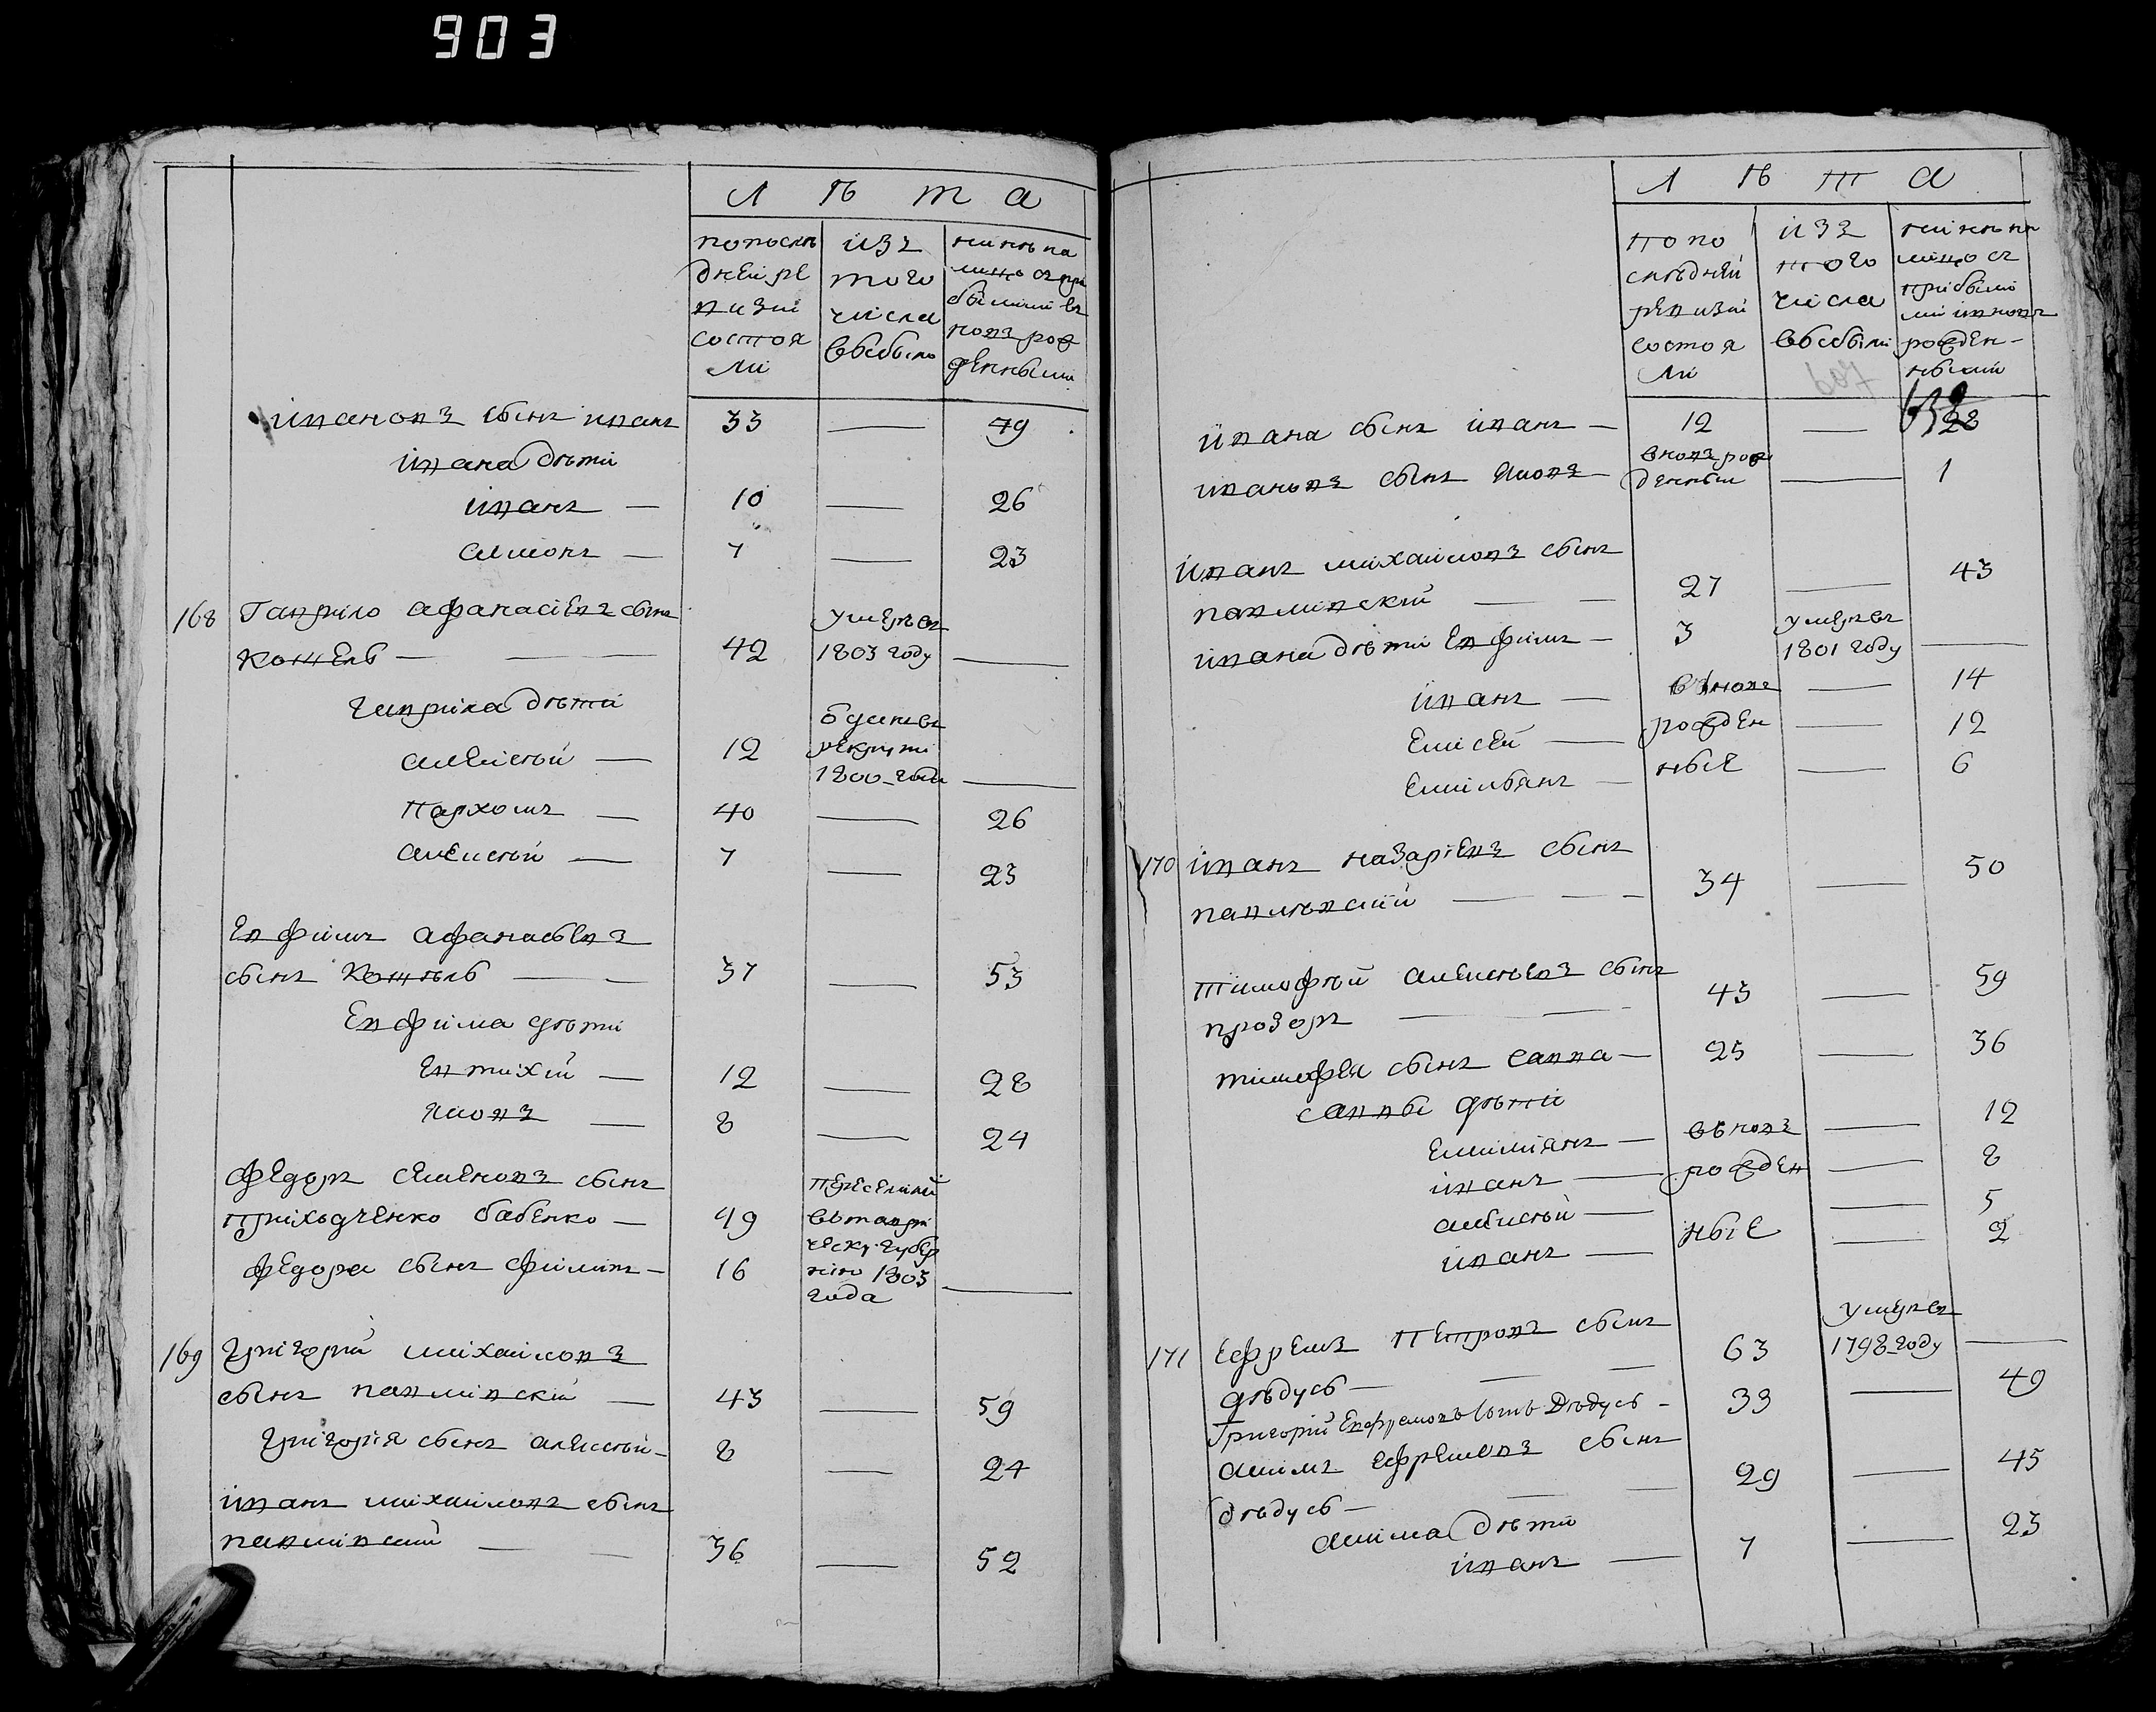 903
Л Ѣ т а
попослѣ
дней ре
визіи
состоя
ли
изъ
того
числа
выбыло
ныне на
лицо съ при
былыми въ
новъ рож
денными
ивановъ сынъ иванъ 33 — 49
ивана дѣти
иванъ — 10 — 26
симонъ — 7 — 23
168 Гаврило афанасіевъ сынъ
Кошель — 42 умеръ въ 1803 году —
гаврила дѣти
алексѣй — 12 отданъ въ рекруты 1800 года —
пархомъ — 40 — 26
алексѣй — 7 — 23
Евфимъ афанасьевъ
сынъ Кошѣль — 37 — 53
Евфима дѣти
Евтихій — 12 — 28
яковъ — 8 — 24
федоръ семеновъ сынъ
приходченко бабенко — 49
федора сынъ филипъ — 16
переселены
въ таври
ческу губер
нію 1803
года —
169 григорій михайловъ
сынъ павлинскій — 43 — 59
григорія сынъ алексѣй — 8 — 24
иванъ михайловъ сынъ
павлинскій — 36 — 52
Л Ѣ т а
по по
слѣдней
ревизіи
состоя
ли
изъ
того
числа
выбыли
607
ныне на
лицо съ
прибылы
ми ивновъ
рожден-
ными
632
ивана сынъ иванъ — 12 — 28
ивановъ сынъ яковъ — вновъ рож денный — 1
Иванъ михайловъ сынъ
павлинскій — 27 — 43
ивана дѣти Евфимъ — 3 умеръ въ 1801 году —
иванъ — вновъ — 14
Елисей — рожден — 12
Емильянъ — ные — 6
170 иванъ назаріевъ сынъ
павлѣвскій — 34 — 50
тимофѣй алексѣевъ сынъ
прозоръ — 43 — 59
тимофея сынъ савва — 25 — 36
саввы дѣти
Емиліянъ — вновъ — 12
иванъ — рожден — 8
алексѣй — 5
иванъ — ные — 2
171 Ефремъ петровъ сынъ
дѣдусь — 63 умеръ въ 1798 году —
Григорій Евфремовъ сынъ Дѣдусь — 33 — 49
акимъ Ефремовъ сынъ
дѣдусь — 29 — 45
акима дѣти
иванъ — 7 — 23